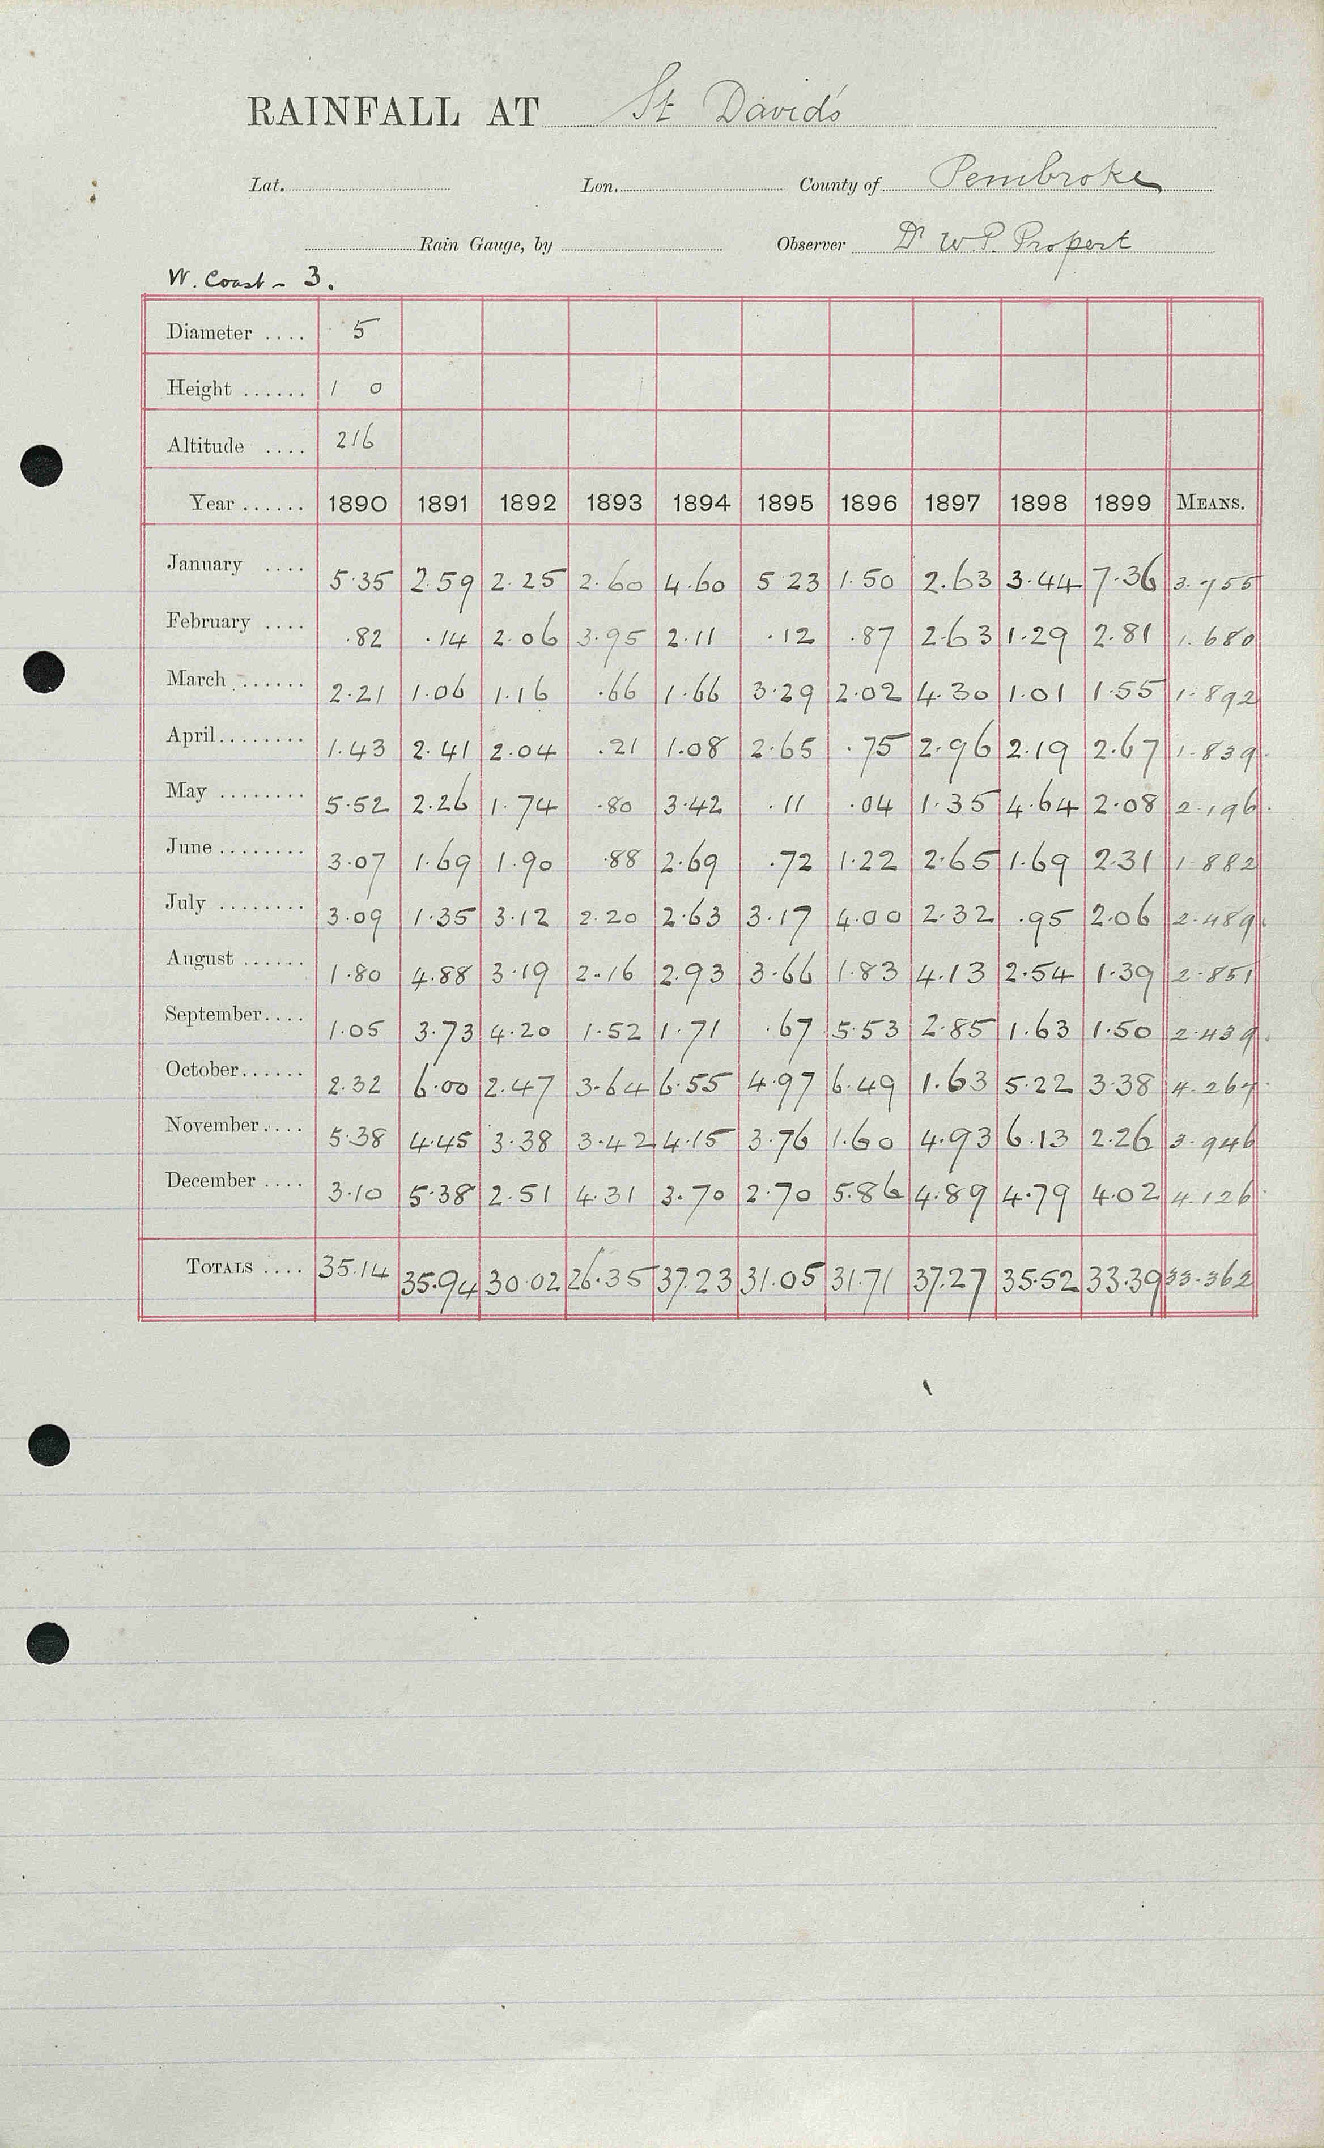 RAINFALL AT St David's
Lat. Lon. County of Pembroke
Rain Gauge, by Observer Dr W. P. Propert
W. Coast - 3.
Diameter .... 5
Height ...... 1 0
Altitude .... 216
Year ...... 1890 1891 1892 1893 1894 1895 1896 1897 1898 1899 MEANS.
January .... 5.35 2.59 2.25 2.60 4.60 5.23 1.50 2.63 3.44 7.36 3.755
February .... .82 .14 2.06 3.95 2.11 .12 .87 2.63 1.29 2.81 1.680
March ....... 2.21 1.06 1.16 .66 1.66 3.29 2.02 4.30 1.01 1.55 1.892
April........ 1.43 2.41 2.04 .21 1.08 2.65 .75 2.96 2.19 2.67 1.839
May ........ 5.52 2.26 1.74 .80 3.42 .11 .04 1.35 4.64 2.08 2.196
June ........ 3.07 1.69 1.90 .88 2.69 .72 1.22 2.65 1.69 2.31 1.882
July ........ 3.09 1.35 3.12 2.20 2.63 3.17 4.00 2.32 .95 2.06 2.489
August ...... 1.80 4.88 3.19 2.16 2.93 3.66 1.83 4.13 2.54 1.39 2.851
September.... 1.05 3.73 4.20 1.52 1.71 .67 5.53 2.85 1.63 1.50 2.439
October...... 2.32 6.00 2.47 3.64 6.55 4.97 6.49 1.63 5.22 3.38 4.267
November.... 5.38 4.45 3.38 3.42 4.15 3.76 1.60 4.93 6.13 2.26 3.946
December .... 3.10 5.38 2.51 4.31 3.70 2.70 5.86 4.89 4.79 4.02 4.126
TOTALS .... 35.14 35.94 30.02 26.35 37.23 31.05 31.71 37.27 35.52 33.39 33.362